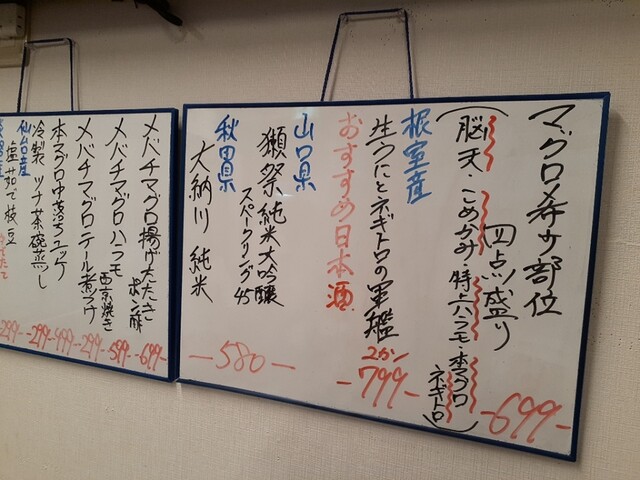 マグロ希少部位
四点盛り
(脳天・こめかみ・特上ハラモ・本マグロ
ネギトロ)
-699-
根室産
生うにとネギトロの軍艦
2カン
-799-
おすすめ日本酒
山口県
獺祭 純米大吟醸
スパークリング45
秋田県
大納川 純米
-580-
メバチマグロ揚げたたき
ポン酢
-699-
メバチマグロハラモ
西京焼き
-599-
メバチマグロテール煮つけ
-299-
本マグロ中落ちユッケ
-499-
冷製 ツナ茶碗蒸し
-299-
仙台産
塩茹で枝豆
-299-